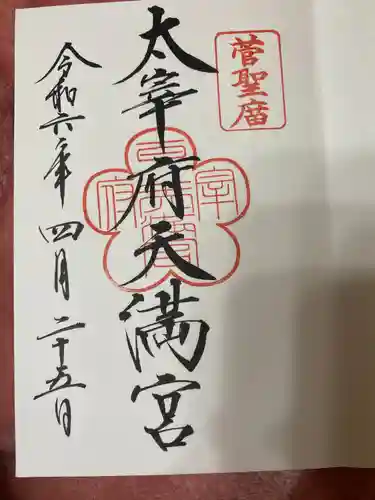 菅聖庿
太宰府天満宮
令和六年四月二十五日